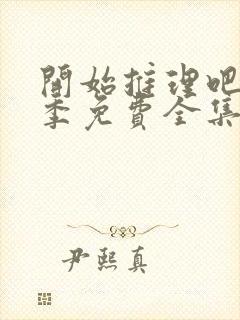 開始推理吧
季免費全集
尹熙真